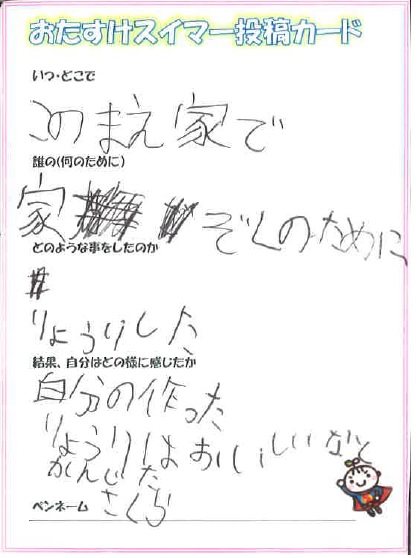 おたすけスイマー投稿カード
いつ・どこで
このまえ家で
誰の(何のために)
家ぞくのために
どのような事をしたのか
りょうりした
結果、自分はどの様に感じたか
自分の作った
りょうりはおいしいなと
かんじた
ペンネーム さくら